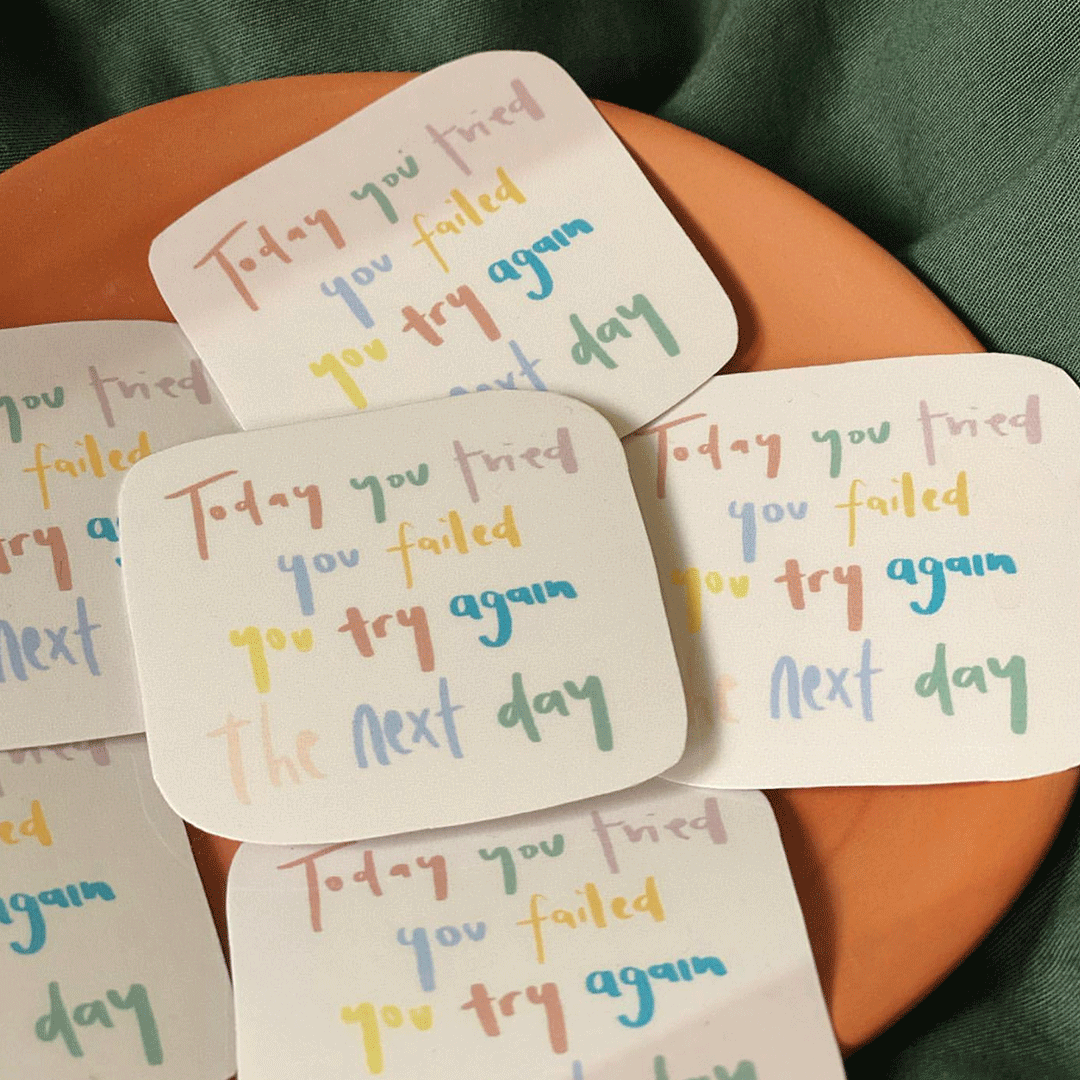 Today you tried
you failed
you try again
next day
Today you tried
you failed
you try again
the next day
Today you tried
you failed
you try again
the next day
you tried
failed
try
next
tried
again
day
Today you tried
you failed
you try again
day